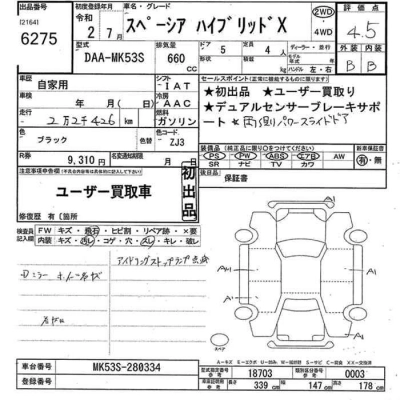 出品番号 初度登録年月 車名・グレード 評価点
[21641]
6275
令和 2年 7月 スペーシア ハイブリッドX 2WD 4WD 4.5
型式 排気量 ドア 定員 外装 内装
DAA-MK53S 660 cc 5 4人 ディーラー・並行 ハンドル 左・右 B B
車歴 自家用 シフト IAT セールスポイント(正常に機能するものに限ります)
車検 年 月(日) 冷房 AAC ★初出品 ★ユーザー買取り
走行 2万2千426 km 燃料 ガソリン ★デュアルセンサーブレーキサポート ★両側パワースライドドア
色 ブラック 色替 カラーNo. ZJ3
R券 9,310円 名変期限 月 日
装備(純正品に限り○をつけてください) 新車保証書
PS PW ABS エアB AW 有・無
SR ナビ TV 革 カワ
注意事項申告欄
初出品
保証書
ユーザー買取車
修復歴 有( )箇所
検査員記入欄 FW キズ・飛石・ヒビ割・リペア跡・×要
内装 キズ・汚レ・コゲ・穴・スレ・キレ・破レ
Dミラー
A1
A1
A1
A1
車台番号 MK53S-280334
登録番号
型式指定番号 18703 類別区分番号 0003
長さ 339 cm 幅 147 cm 高さ 178 cm